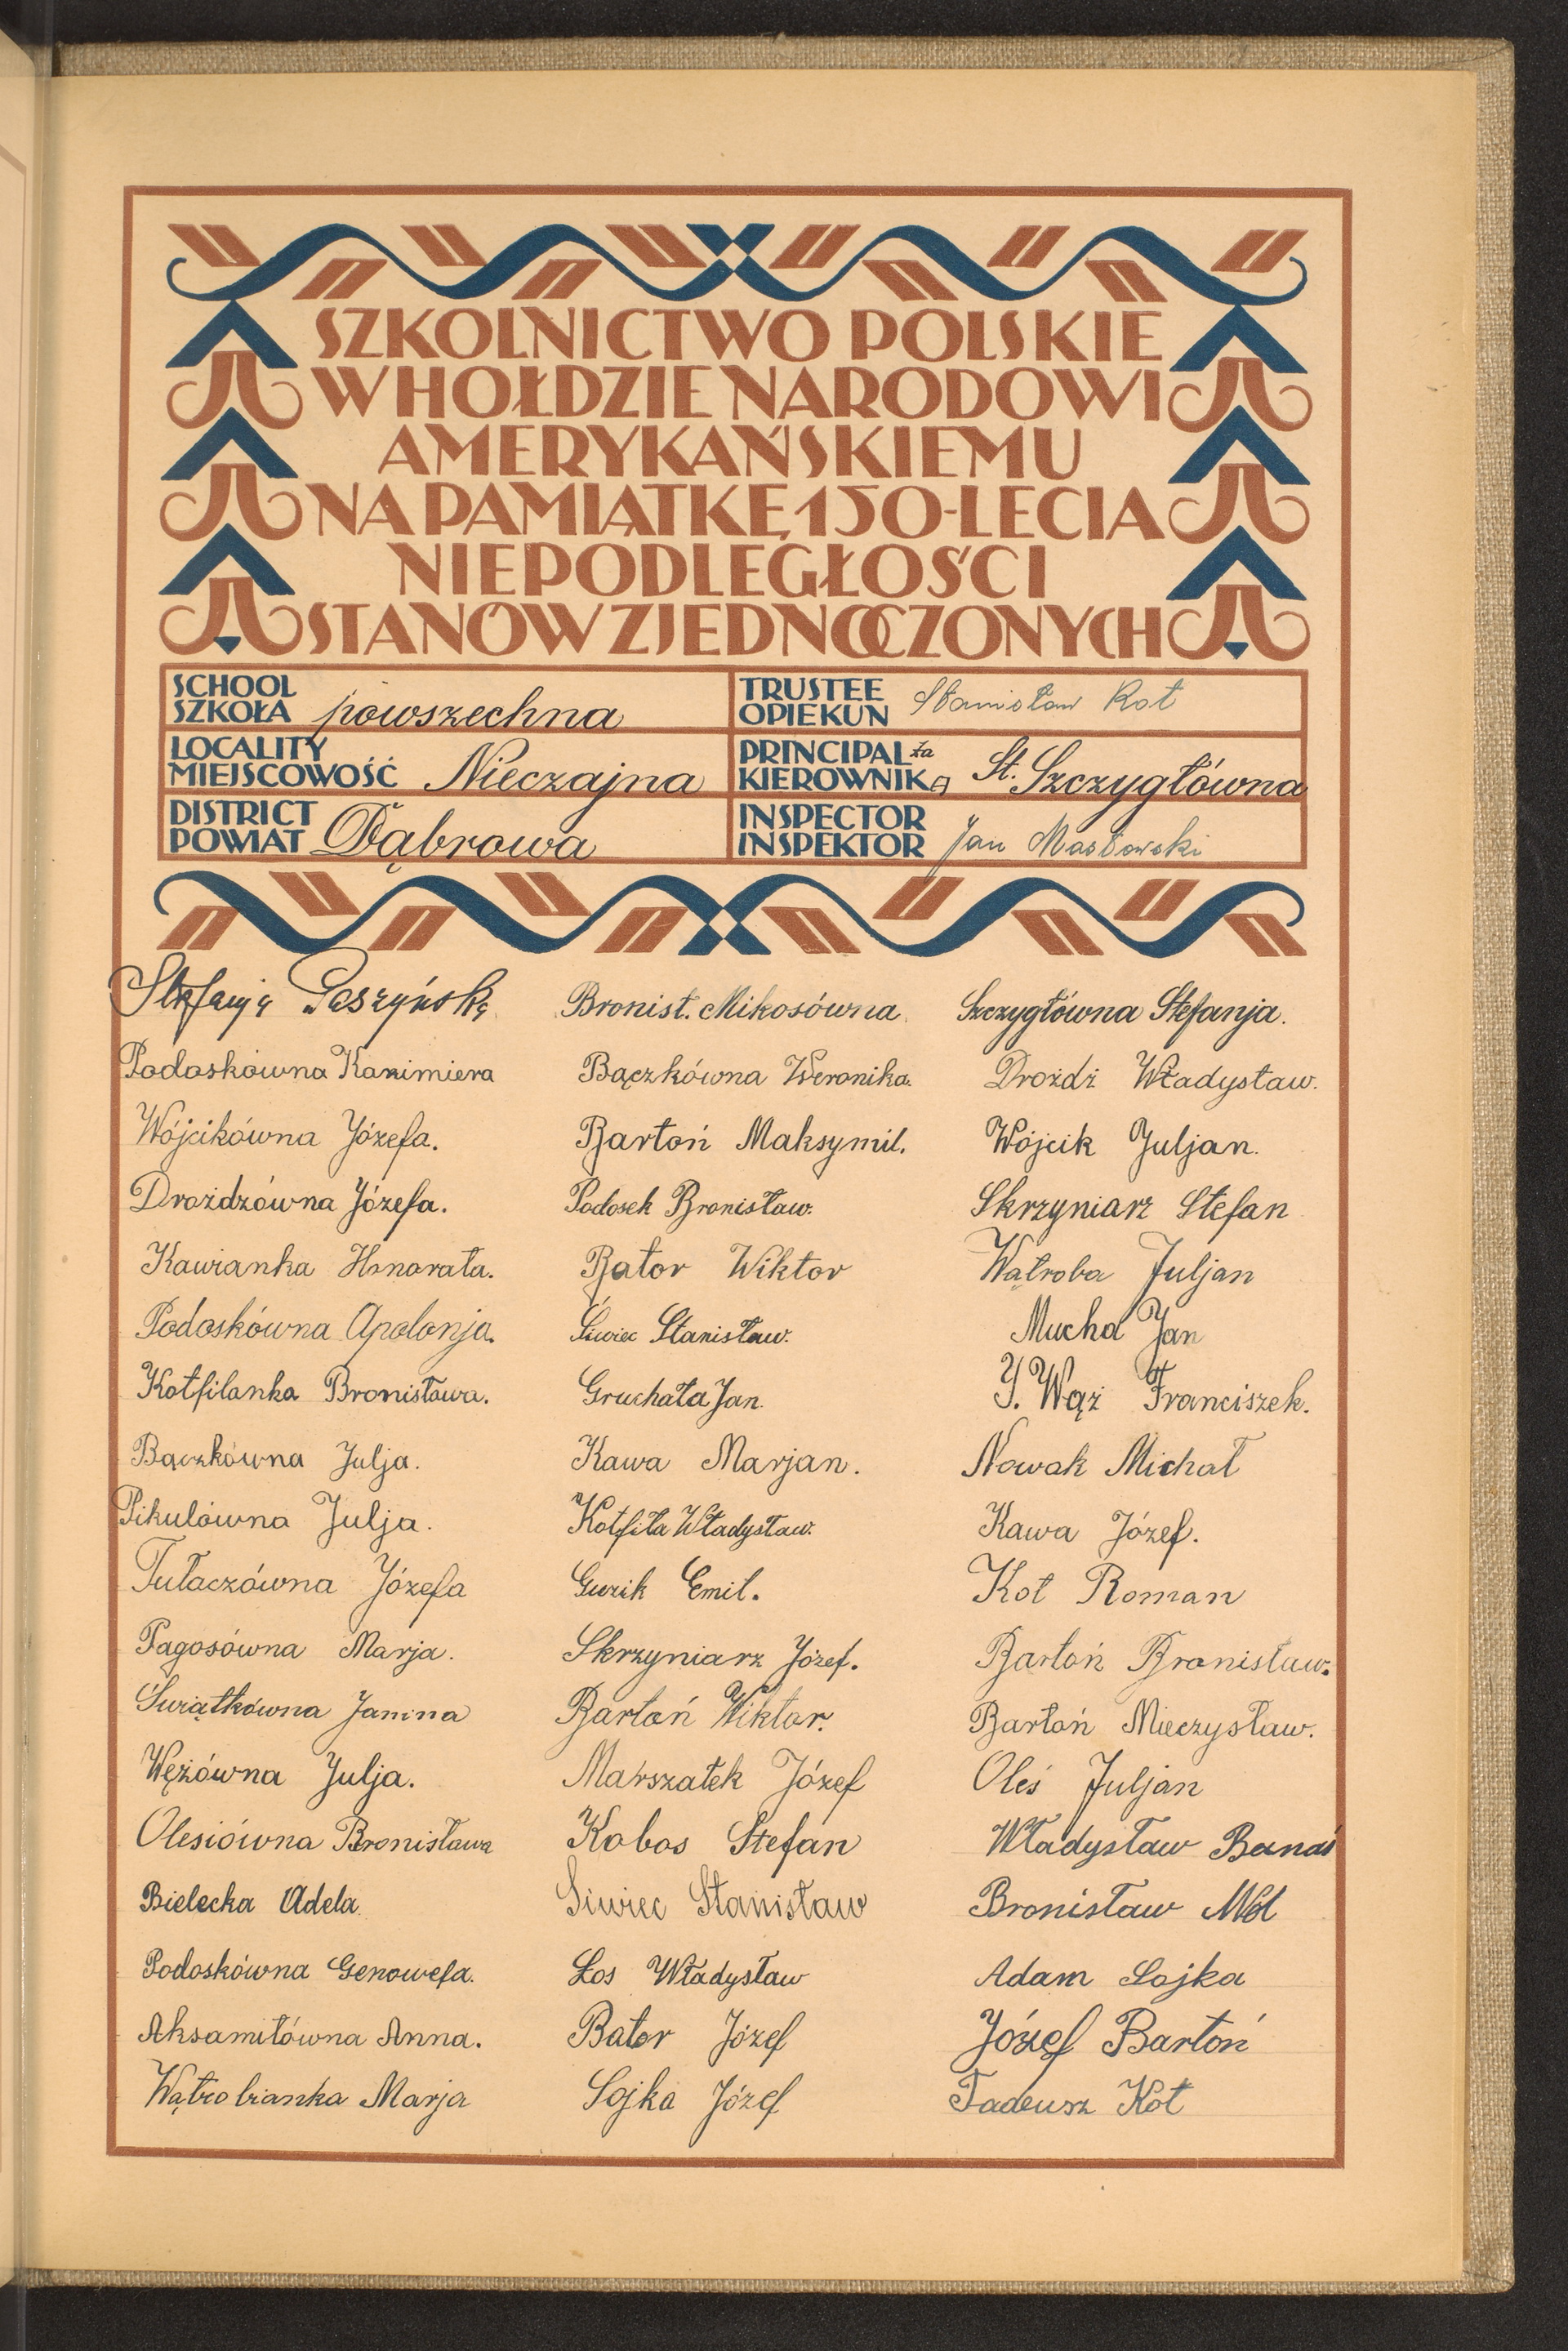 SZKOLNICTWO POLSKIE
W HOŁDZIE NARODOWI
AMERYKAŃSKIEMU
NA PAMIĄTKĘ 150-LECIA
NIEPODLEGŁOŚCI
STANÓW ZJEDNOCZONYCH
SCHOOL
SZKOŁA powszechna
TRUSTEE
OPIEKUN Stanisław Kot
LOCALITY
MIEJSCOWOŚĆ Nieczajna
PRINCIPAL
KIEROWNIK St. Szczygłówna
DISTRICT
POWIAT Dąbrowa
INSPECTOR
INSPEKTOR Jan Masłowski
Stefanja
Podoskówna Kazimiera
Wójcikówna Józefa.
Drożdzówna Józefa.
Kawianka Honorata.
Podoskówna Apolonja.
Kotfilanka Bronisława.
Bączkówna Julja.
Pikulówna Julja.
Tułaczówna Józefa
Pagosówna Marja.
Świątkówna Janina
Wężówna Julja.
Olesiówna Bronisława
Bielecka Adela
Podoskówna Genowefa.
Aksamitówna Anna.
Wątrobianka Marja
Bronisł. Mikosówna
Bączkówna Weronika.
Bartoń Maksymil.
Podosek Bronisław.
Bator Wiktor
Siwiec Stanisław.
Gruchała Jan.
Kawa Marjan.
Kotfiła Władysław.
Guzik Emil.
Skrzyniarz Józef.
Bartoń Wiktor.
Marszałek Józef
Kobos Stefan
Siwiec Stanisław
Łos Władysław
Bator Józef
Sojka Józef
Szczygłówna Stefanja.
Drożdż Władysław.
Wójcik Juljan.
Skrzyniarz Stefan
Wątroba Juljan
Mucha Jan
J. Wąż Franciszek.
Nowak Michał
Kawa Józef.
Kot Roman
Bartoń Bronisław.
Bartoń Mieczysław.
Oleś Juljan
Władysław Banaś
Bronisław Mól
Adam Sojka
Józef Bartoń
Tadeusz Kot